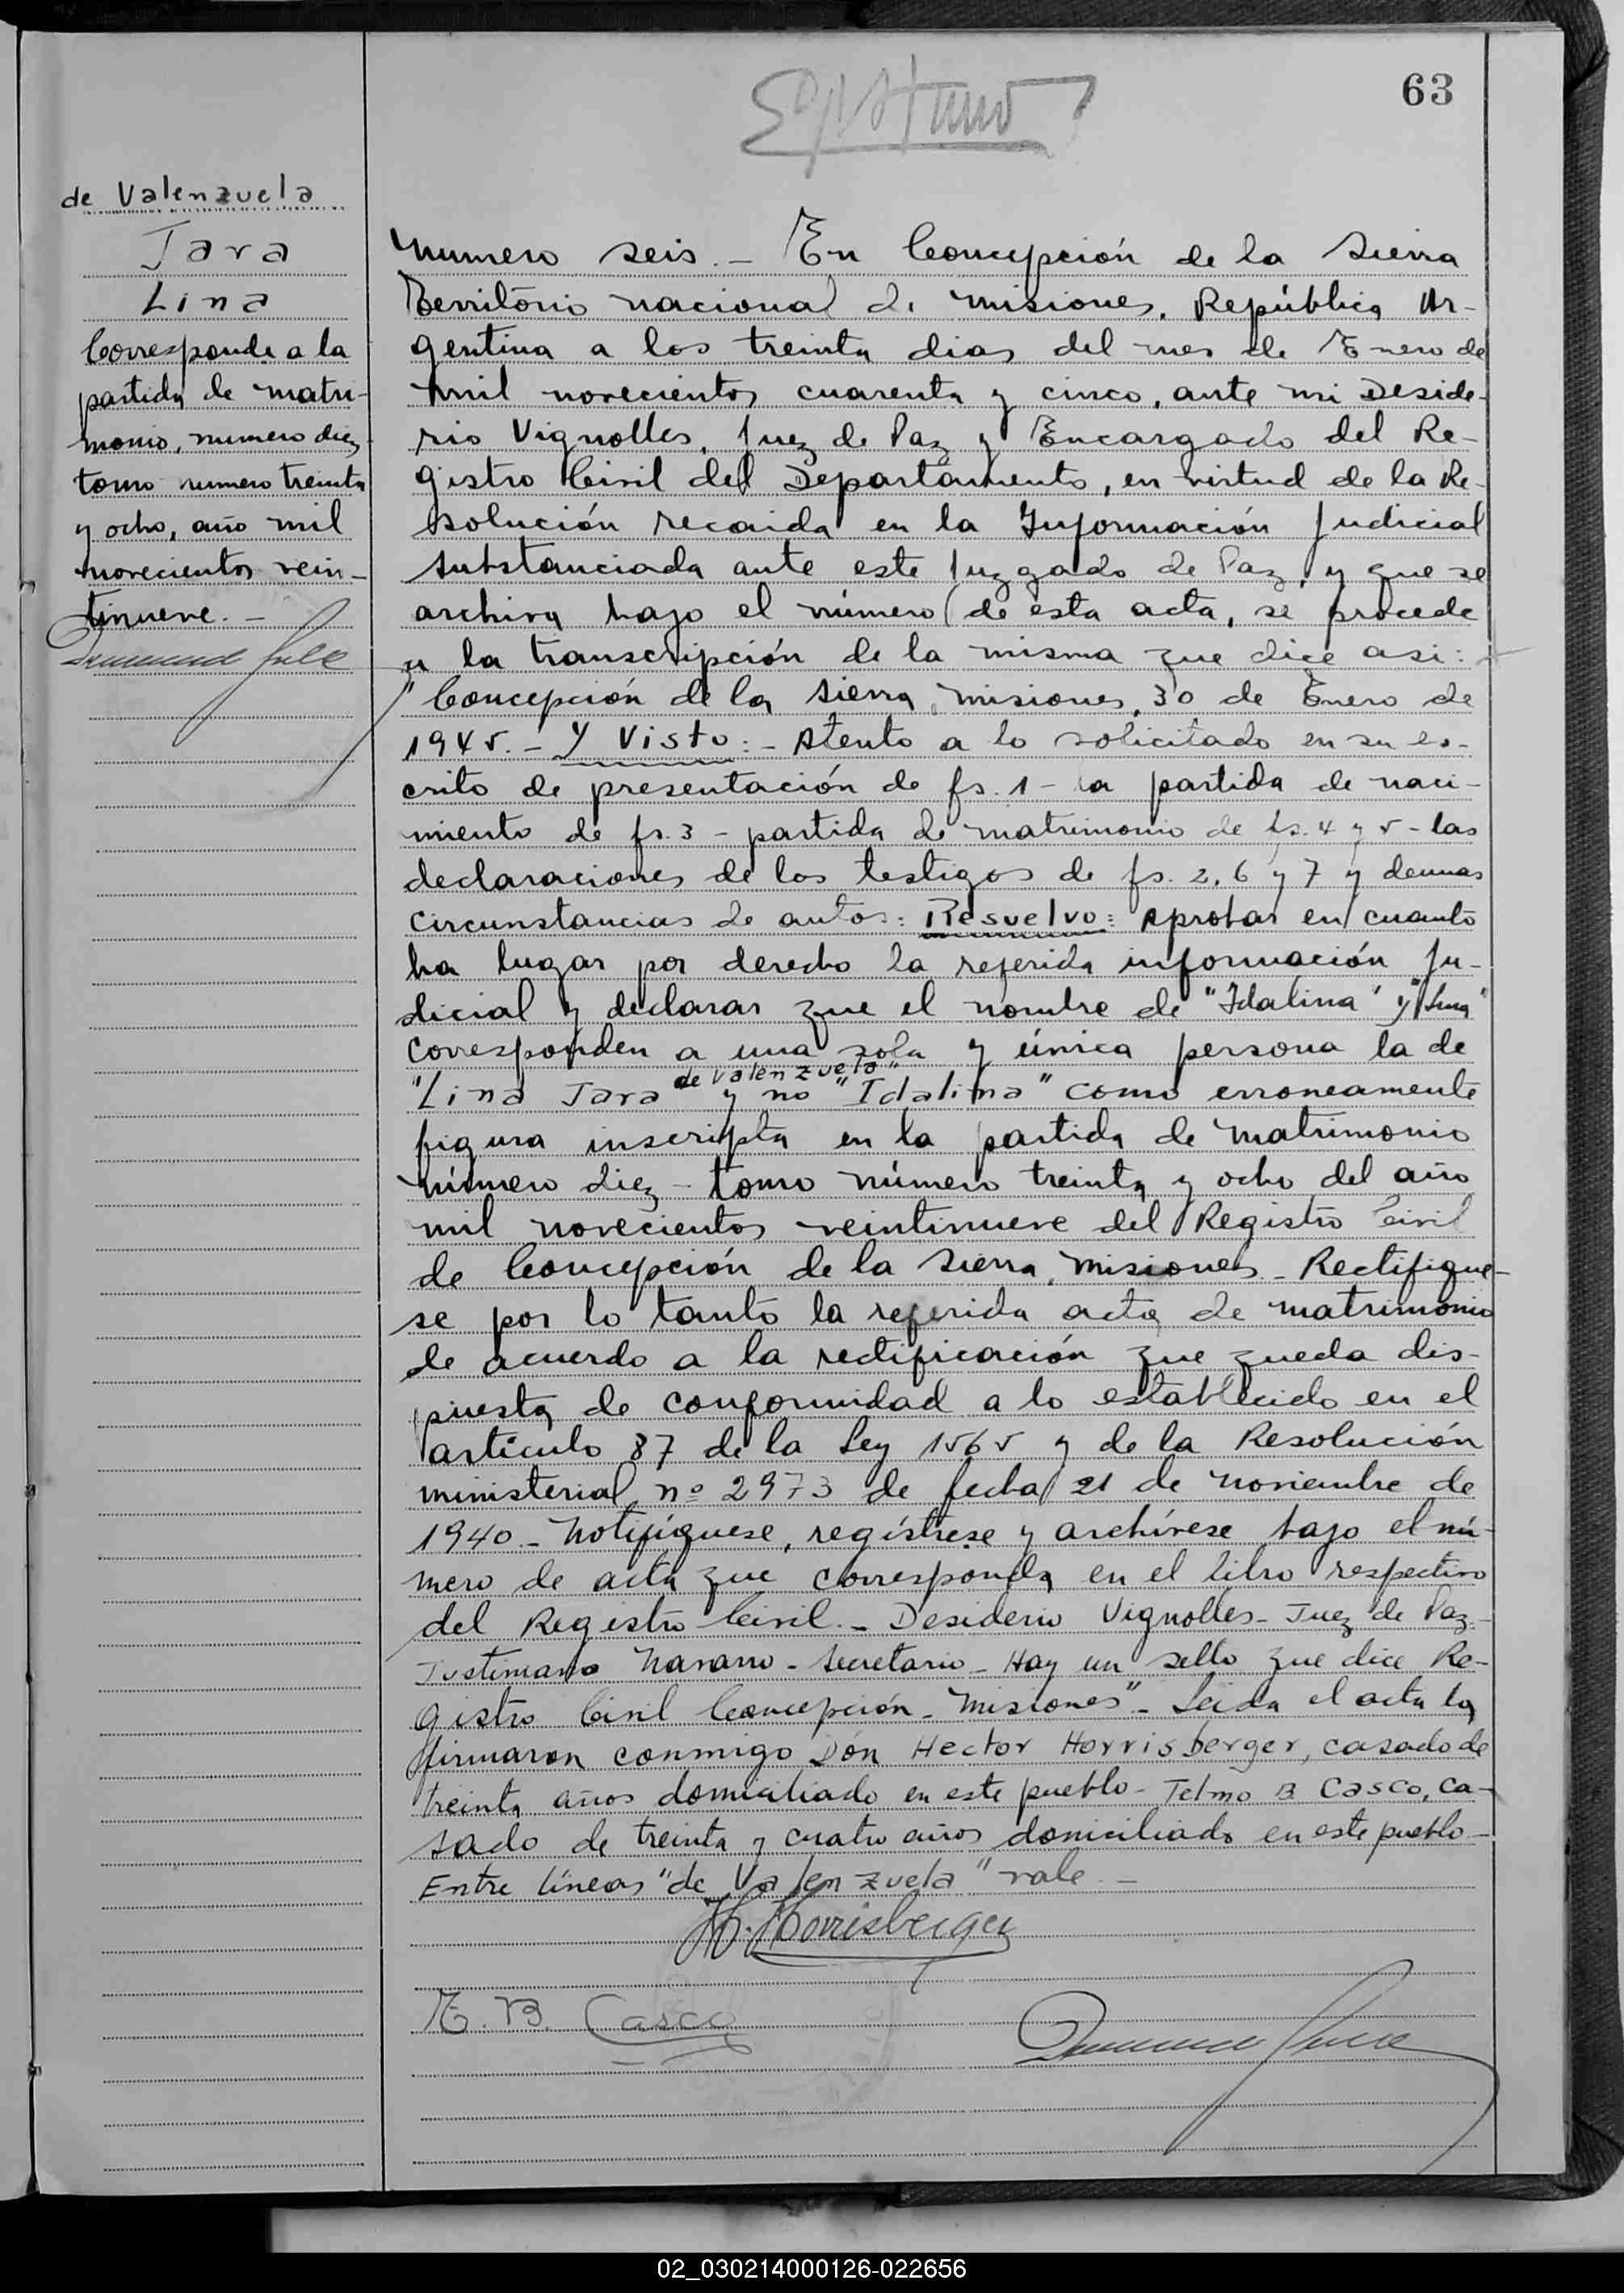 63
de Valenzuela
Jara
Lina
Corresponde a la
partida de matri-
monio, numero diez
tomo numero treinta
y ocho, año mil
novecientos vein-
tinueve.-
Numero seis.- En Concepción de la Sierra
Territorio nacional de misiones, República Ar-
gentina a los treinta dias del mes de Enero de
mil novecientos cuarenta y cinco, ante mi Deside-
rio Vignolles, Juez de Paz y Encargado del Re-
gistro Civil del Departamento, en virtud de la Re-
solución recaida en la Información Judicial
substanciada ante este Juzgado de Paz, y que se
archiva bajo el número de esta acta, se procede
a la transcripción de la misma que dice asi:
"Concepción de la Sierra, misiones, 30 de Enero de
1945.- Y Visto:- Atento a lo solicitado en su es-
crito de presentación de fs. 1 - la partida de naci-
miento de fs. 3 - partida de matrimonio de fs. 4 y 5 - las
declaraciones de los testigos de fs. 2, 6 y 7 y demas
circunstancias de autos: Resuelvo: Aprobar en cuanto
ha lugar por derecho la referida información Ju-
dicial y declarar que el nombre de "Idalina" y "Lina"
corresponden a una sola y única persona la de
de Valenzuela"
"Lina Jara y no "Idalina" como erroneamente
figura inscripta en la partida de matrimonio
número diez - tomo número treinta y ocho del año
mil novecientos veintinueve del Registro Civil
de Concepción de la Sierra, misiones - Rectifique-
se por lo tanto la referida acta de matrimonio
de acuerdo a la rectificación que queda dis-
puesta de conformidad a lo establecido en el
artículo 87 de la Ley 1565 y de la Resolución
ministerial nº 2973 de fecha 21 de noviembre de
1940 - Notifíquese, regístrese y archívese bajo el nú-
mero de acta que corresponda en el libro respectivo
del Registro Civil.- Desiderio Vignolles - Juez de Paz -
Justiniano Navarro - Secretario - Hay un sello que dice Re-
gistro Civil Concepción - Misiones" - Leida el acta la
firmaron conmigo Dón Hector Horrisberger, casado de
treinta años domiciliado en este pueblo - Telmo B Casco, ca-
sado de treinta y cuatro años domiciliado en este pueblo -
Entre líneas "de Valenzuela" vale.-
H. Horrisberger
T. B. Casco
02_030214000126-022656